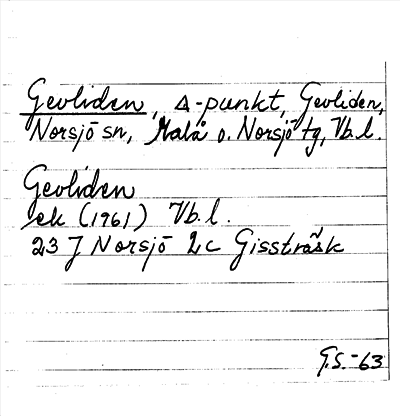 Gevliden, Δ-punkt, Gevliden,
Norsjö sn, Malå o. Norsjö tg, Vb.l.
Gevliden
ek (1961) Vb.l.
23 J Norsjö 2c Gissträsk
G.S.-63